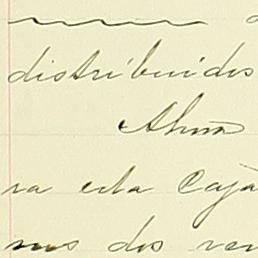 distribuidos
Ahora
ra esta Caja
mos dos ven